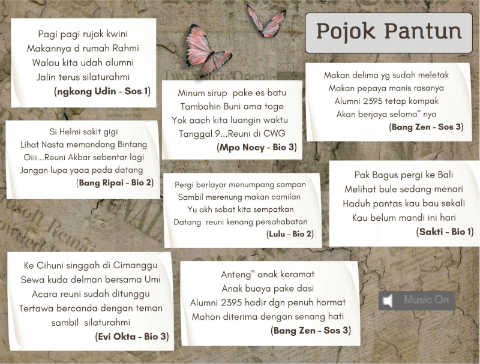 Pojok Pantun
Pagi pagi rujok kwini
Makannya d rumah Rahmi
Walau kita udah alumni
Jalin terus silaturahmi
(ngkong Udin - Sos 1)
Minum sirup pake es batu
Tambahin Buni ama toge
Yok aach kita luangin waktu
Tanggal 9...Reuni di CWG
(Mpo Nocy - Bio 3)
Makan delima yg sudah meletak
Makan pepaya manis rasanya
Alumni 2395 tetap kompak
Akan berjaya selama" nya
(Bang Zen - Sos 3)
Si Helmi sakit gigi
Lihat Nasta memandang Bintang
Oiii...Reuni Akbar sebentar lagi
Jangan lupa yaaa pada datang
(Bang Ripai - Bio 2)
Pergi berlayar menumpang sampan
Sambil merenung makan camilan
Yu akh sobat kita sempatkan
Datang reuni kenang persahabatan
(Lulu - Bio 2)
Pak Bagus pergi ke Bali
Melihat bule sedang menari
Haduh pantas kau bau sekali
Kau belum mandi ini hari
(Sakti - Bio 1)
Ke Cihuni singgah di Cimanggu
Sewa kuda delman bersama Umi
Acara reuni sudah ditunggu
Tertawa bercanda dengan teman
sambil silaturahmi
(Evi Okta - Bio 3)
Anteng" anak keramat
Anak buaya pake dasi
Alumni 2395 hadir dgn penuh hormat
Mohon diterima dengan senang hati
(Bang Zen - Sos 3)
Music On